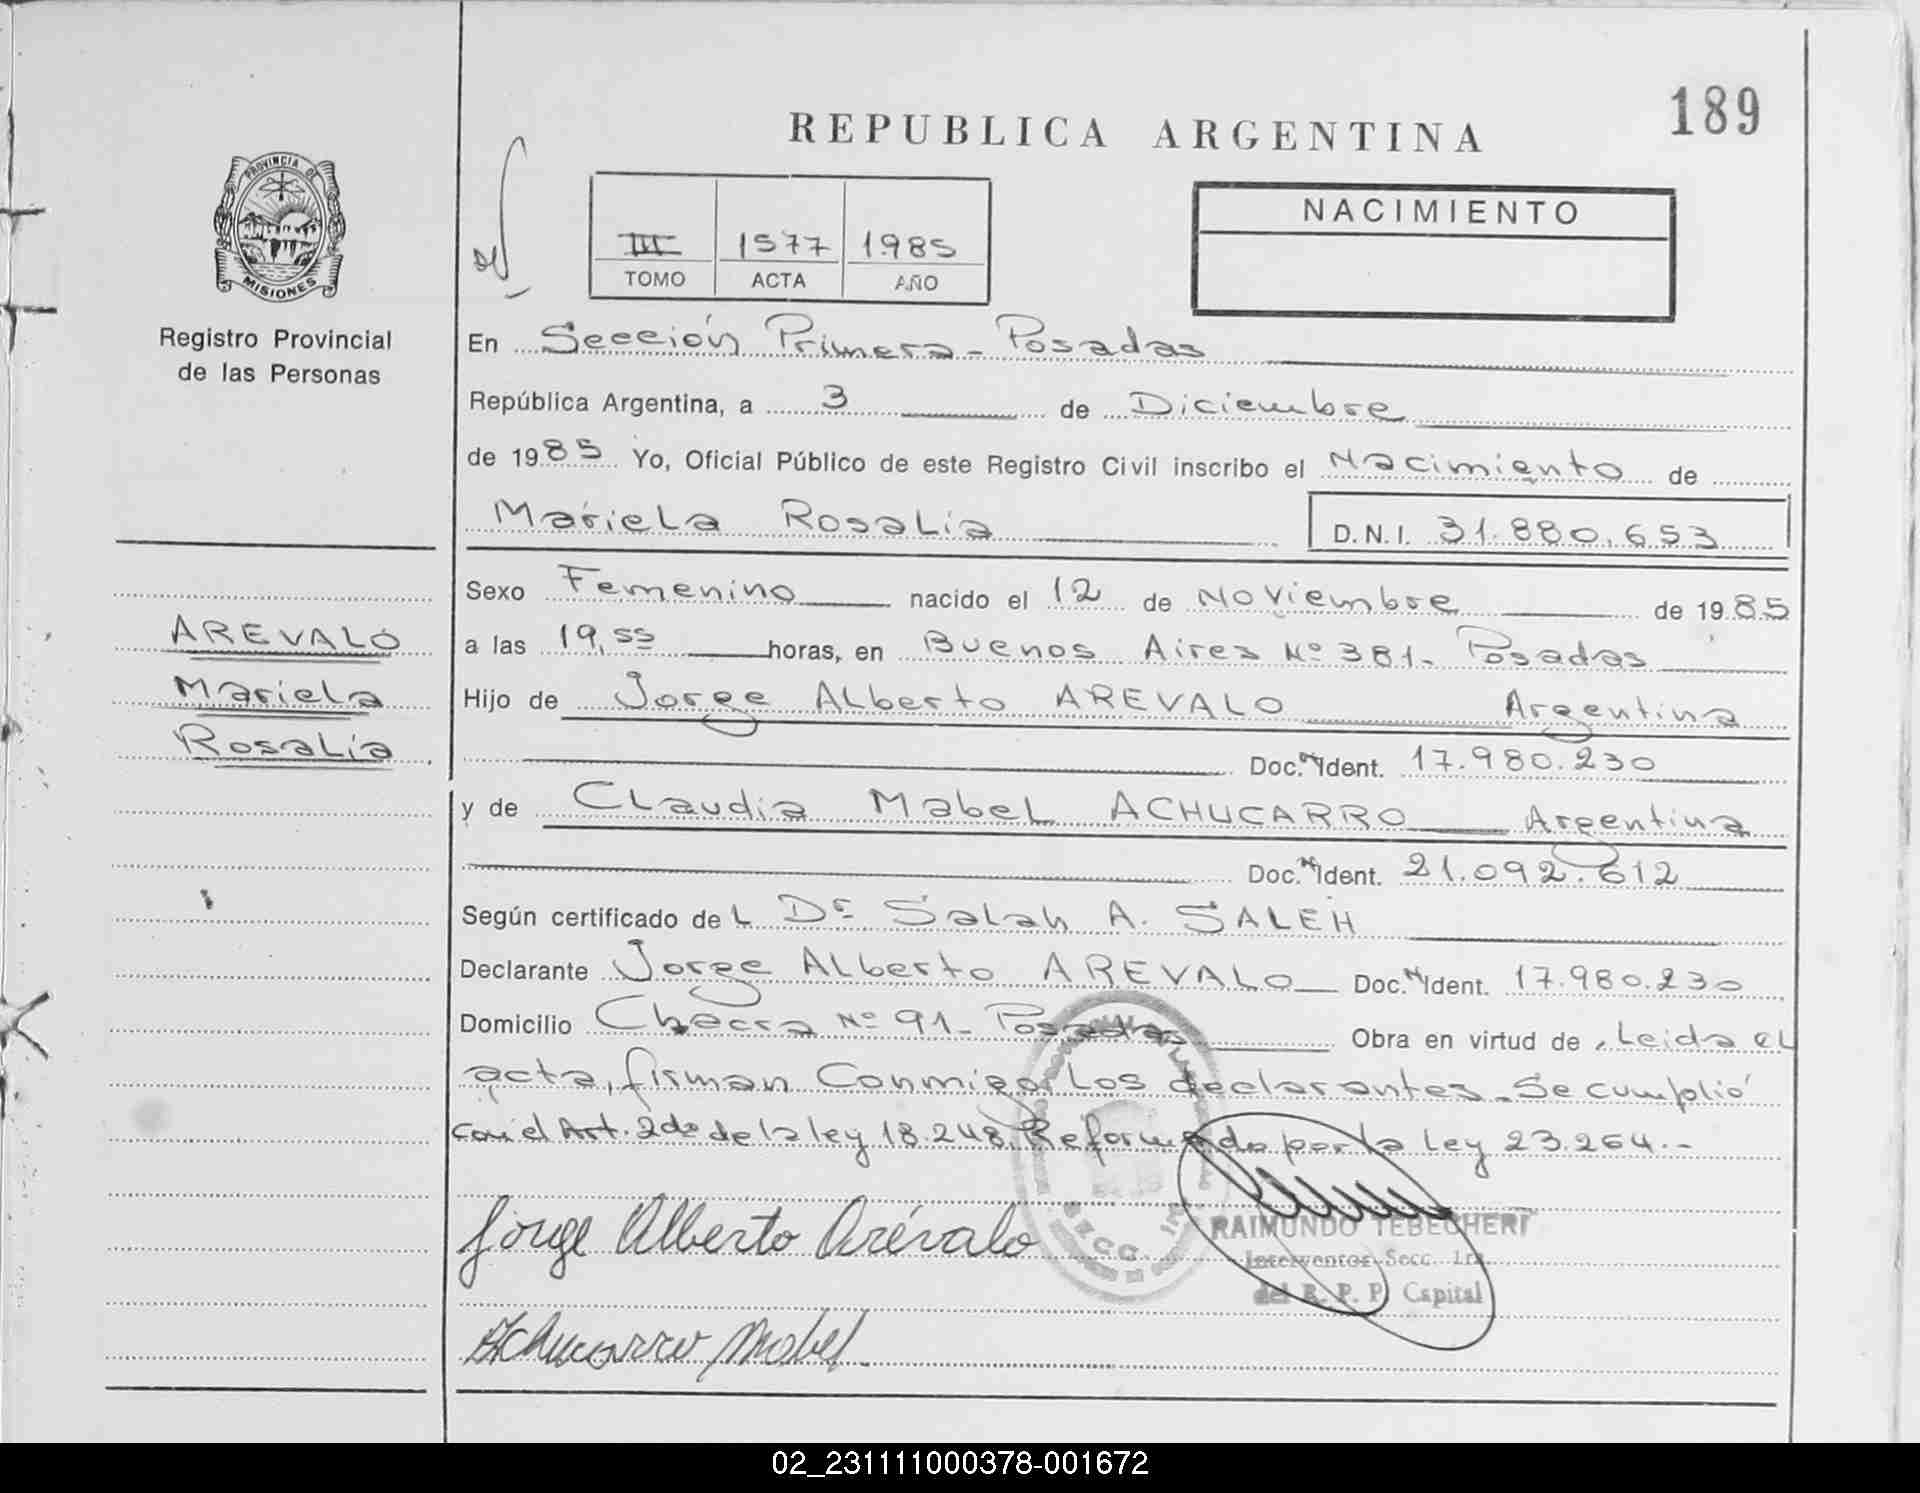 189
REPUBLICA ARGENTINA
PROVINCIA DE
MISIONES
Registro Provincial
de las Personas
III 1577 1985
TOMO ACTA AÑO
NACIMIENTO
En Sección Primera - Posadas
República Argentina, a 3 de Diciembre
de 1985 Yo, Oficial Público de este Registro Civil inscribo el Nacimiento de
Mariela Rosalía D.N.I. 31.880.653
Sexo Femenino nacido el 12 de Noviembre de 1985
a las 19,55 horas, en Buenos Aires Nº 381- Posadas
Hijo de Jorge Alberto AREVALO Argentina
Doc. Ident. 17.980.230
y de Claudia Mabel ACHUCARRO Argentina
Doc. Ident. 21.092.612
Según certificado de L Dr. Salah A. SALEH
Declarante Jorge Alberto AREVALO Doc. Ident. 17.980.230
Domicilio Chacra Nº 91- Posadas Obra en virtud de , Leida el
acta, firman Conmigo, Los declarantes. Se cumplió
con el Art. 2do de la ley 18.248. Reformado por la Ley 23.264.-
AREVALO
Mariela
Rosalía
Jorge Alberto Arévalo
RAIMUNDO TEBECHERI
Interventor Secc. 1ra.
del R. P. P. Capital
Achucarro Mabel
02_231111000378-001672